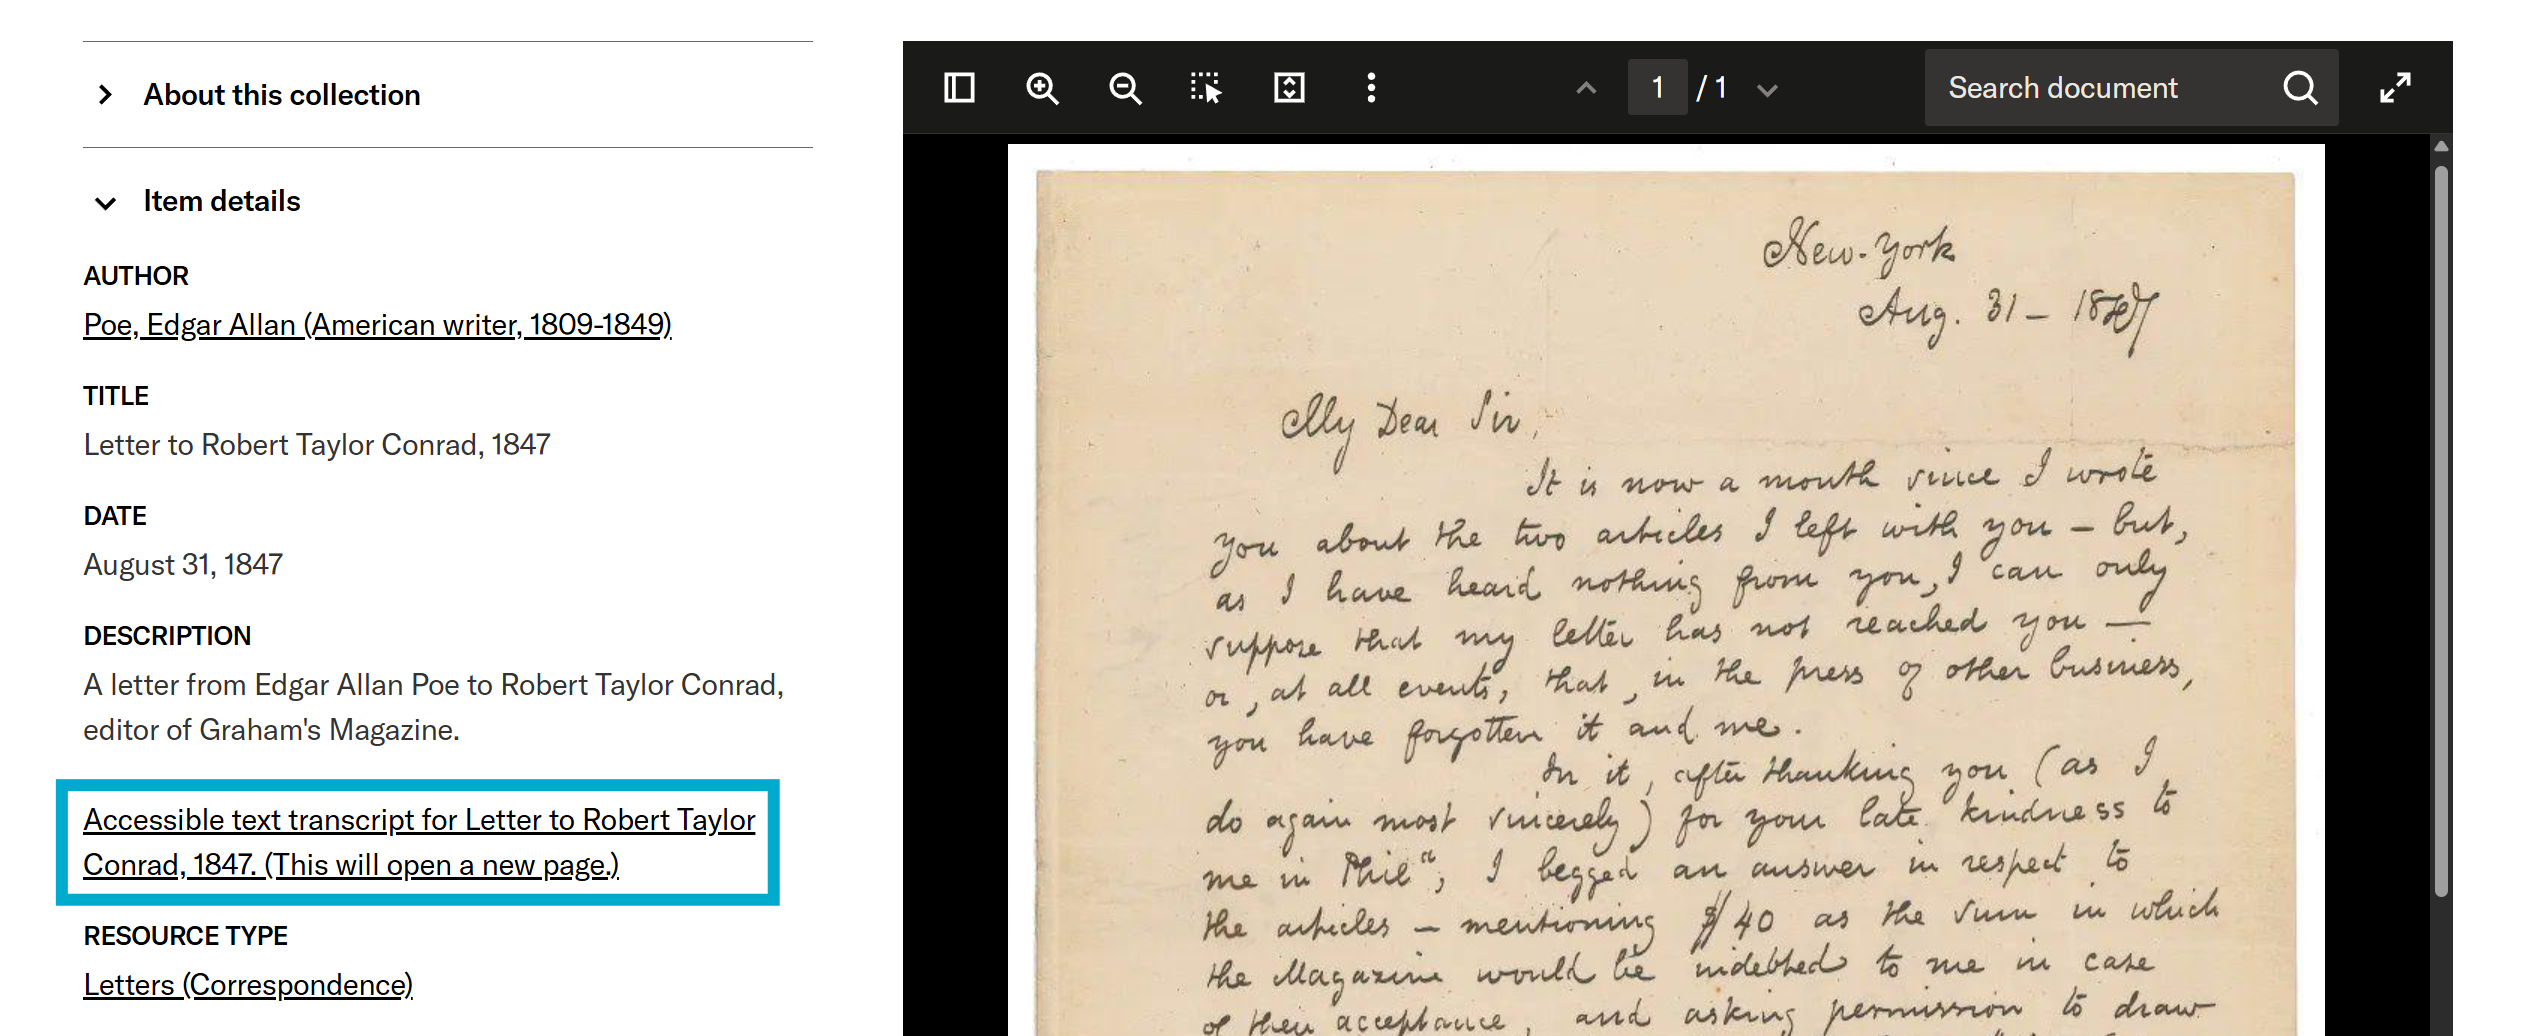 About this collection
Item details
AUTHOR
Poe, Edgar Allan (American writer, 1809-1849)
TITLE
Letter to Robert Taylor Conrad, 1847
DATE
August 31, 1847
DESCRIPTION
A letter from Edgar Allan Poe to Robert Taylor Conrad,
editor of Graham's Magazine.
Accessible text transcript for Letter to Robert Taylor
Conrad, 1847. (This will open a new page.)
RESOURCE TYPE
Letters (Correspondence)
1 / 1
Search document
New-York
Aug. 31 – 1847
My Dear Sir,
It is now a month since I wrote
you about the two articles I left with you – but,
as I have heard nothing from you, I can only
suppose that my letter has not reached you —
or, at all events, that, in the press of other business,
you have forgotten it and me.
In it, after thanking you (as I
do again most sincerely) for your late kindness to
me in Phila, I begged an answer in respect to
the articles – mentioning $40 as the sum in which
the Magazine would be indebted to me in case
of their acceptance, and asking permission to draw